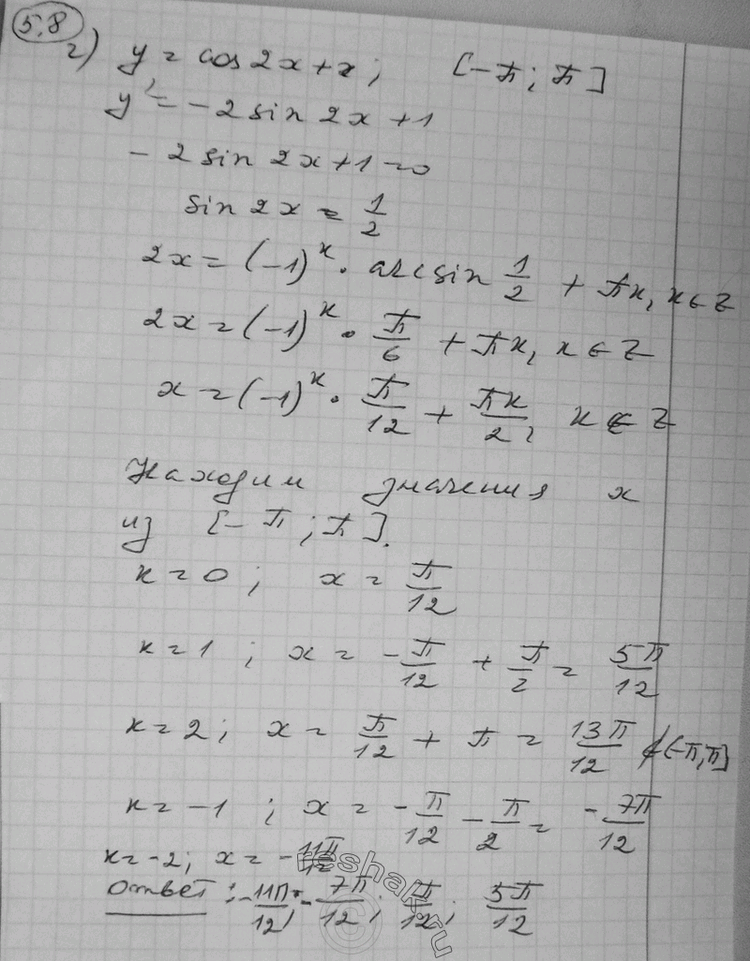 5.8
г) y = cos 2x + x; [-π; π]
y' = -2 sin 2x + 1
-2 sin 2x + 1 = 0
sin 2x = 1/2
2x = (-1)^к · arcsin 1/2 + πк, к ∈ Z
2x = (-1)^к · π/6 + πк, к ∈ Z
x = (-1)^к · π/12 + πк/2, к ∈ Z
Находим значения x
из [-π; π].
к = 0; x = π/12
к = 1; x = -π/12 + π/2 = 5π/12
к = 2; x = π/12 + π = 13π/12 ∉ [-π, π]
к = -1; x = -π/12 - π/2 = -7π/12
к = -2; x = -11π/12
Ответ: -11π/12; -7π/12; π/12; 5π/12
reshak.ru